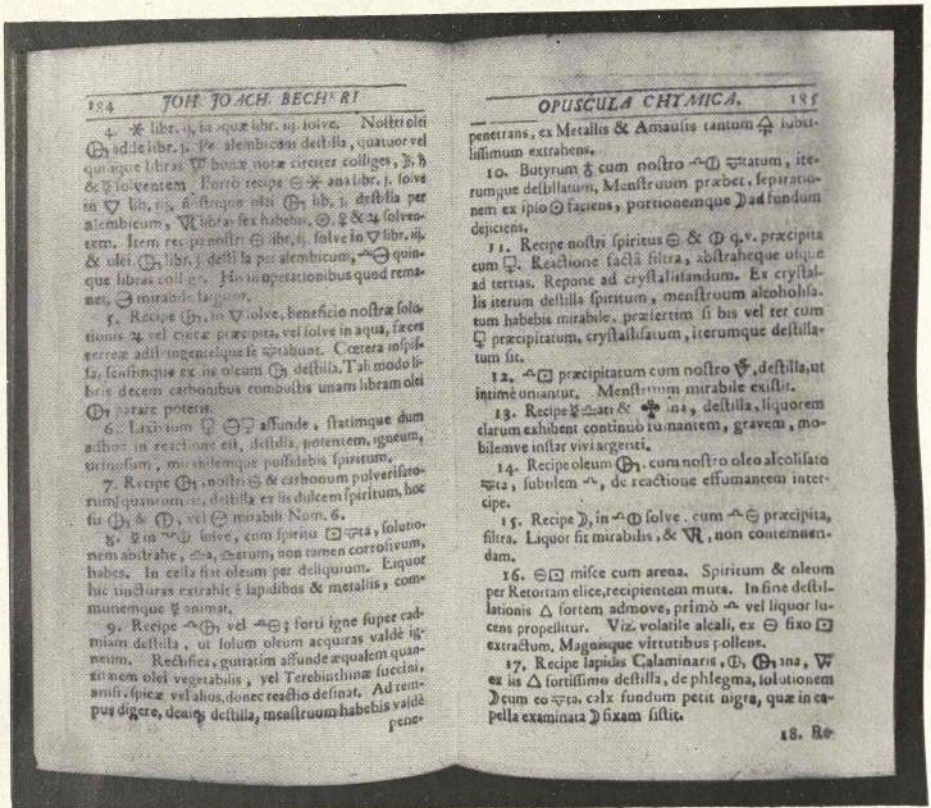 184 JOH. JOACH. BECHERI
4. libr. ij, in aquæ libr. iij. solve. Nostri olei
adde libr. j. Per alembicum destilla, quatuor vel
quinque libras bonæ notæ circiter colliges,
& solventem. Porrò recipe ana libr. j. solve
in lib. iij. nostrique olei lib. j. destilla per
alembicum, libras sex habebis, & solven-
tem. Item recipe nostri libr. ij. solve in libr. iij.
& olei libr. j. destilla per alembicum, quin-
que libras colliges. His in operationibus quod rema-
net, mirabile
5. Recipe in solve, beneficio nostræ solu-
tionis vel præcipita, vel solve in aqua, fæces
terreæ Cœtera inspis-
sa, sensimque ex iis oleum destilla. Tali modo li-
bris decem carbonibus combustis unam libram olei
parare poteris.
6. Lixivium affunde, statimque dum
adhuc in reactione est, destilla, potentem, igneum,
urinosum, mirabilemque possidebis spiritum.
7. Recipe nostri & carbonum pulverisato-
rum destilla ex iis dulcem spiritum, hoc
fit & vel mirabili Num. 6.
8. in solve, cum spiritu ta, solutio-
nem abstrahe, a, atum, non tamen corrosivum,
habes. In cella fit oleum per deliquium. Liquor
hic tincturas extrahit è lapidibus & metallis, com-
munemque animat.
9. Recipe vel forti igne super cad-
miam destilla, ut solum oleum acquiras valdè ig-
neum. Rectifica, guttatim affunde æqualem quan-
titatem olei vegetabilis, vel Terebinthinæ succini,
anisi, spicæ vel alios, donec reactio desinat. Ad tem-
pus digere, denique destilla, menstruum habebis valdè
pene-
OPUSCULA CHYMICA. 185
penetrans, ex Metallis & Amausis tantum subti-
lissimum extrahens.
10. Butyrum cum nostro tatum, ite-
rumque destillatum, Menstruum præbet, separatio-
nem ex ipso ☉ faciens, portionemque ☽ ad fundum
dejiciens.
11. Recipe nostri spiritus & q.v. præcipita
cum Reactione factâ filtra, abstraheque usque
ad tertias. Repone ad crystallisandum. Ex crystal-
lis iterum destilla spiritum, menstruum alcoholisa-
tum habebis mirabile, præsertim si bis vel ter cum
præcipitatum, crystallisatum, iterumque destilla-
tum sit.
12. præcipitatum cum nostro destilla, ut
intimè uniantur. Menstruum mirabile existit.
13. Recipe ati & ina, destilla, liquorem
clarum exhibent continuò fumantem, gravem, mo-
bilemve instar vivi argenti.
14. Recipe oleum cum nostro oleo alcolisato
ta, subtilem de reactione effumantem inter-
cipe.
15. Recipe ☽, in solve. cum præcipita,
filtra. Liquor fit mirabilis, & non contemnen-
dam.
16. misce cum arena. Spiritum & oleum
per Retortam elice, recipientem muta. In fine destil-
lationis △ fortem admove, primò vel liquor lu-
cens propellitur. Viz. volatile alcali, ex fixo
extractum. Magnisque virtutibus pollens.
17. Recipe lapidis Calaminaris, ana,
ex iis △ fortissimo destilla, de phlegma, solutionem
☽ cum eo ta. calx fundum petit nigra, quæ in ca-
pella examinata ☽ fixam sistit.
18. Re-